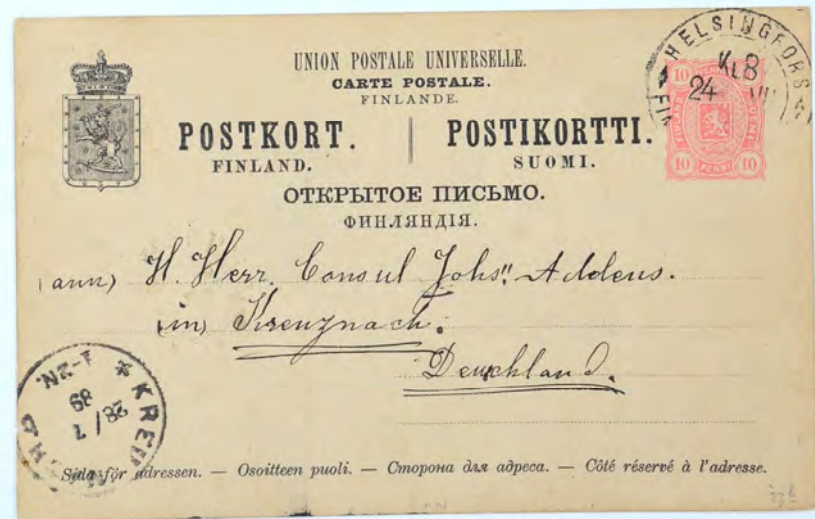 UNION POSTALE UNIVERSELLE.
CARTE POSTALE.
FINLANDE.
POSTKORT. POSTIKORTTI.
FINLAND. SUOMI.
ОТКРЫТОЕ ПИСЬМО.
ФИНЛЯНДІЯ.
HELSINGFORS
KL8
24 VII
10 10
10 PENNI 10
(ann) H. Herr. Consul Johs. Addens.
(in) Kreuznach.
Deuchland.
KREU
28/7
89
1-2N.
Sida för adressen. — Osoitteen puoli. — Сторона для адреса. — Côté réservé à l'adresse.